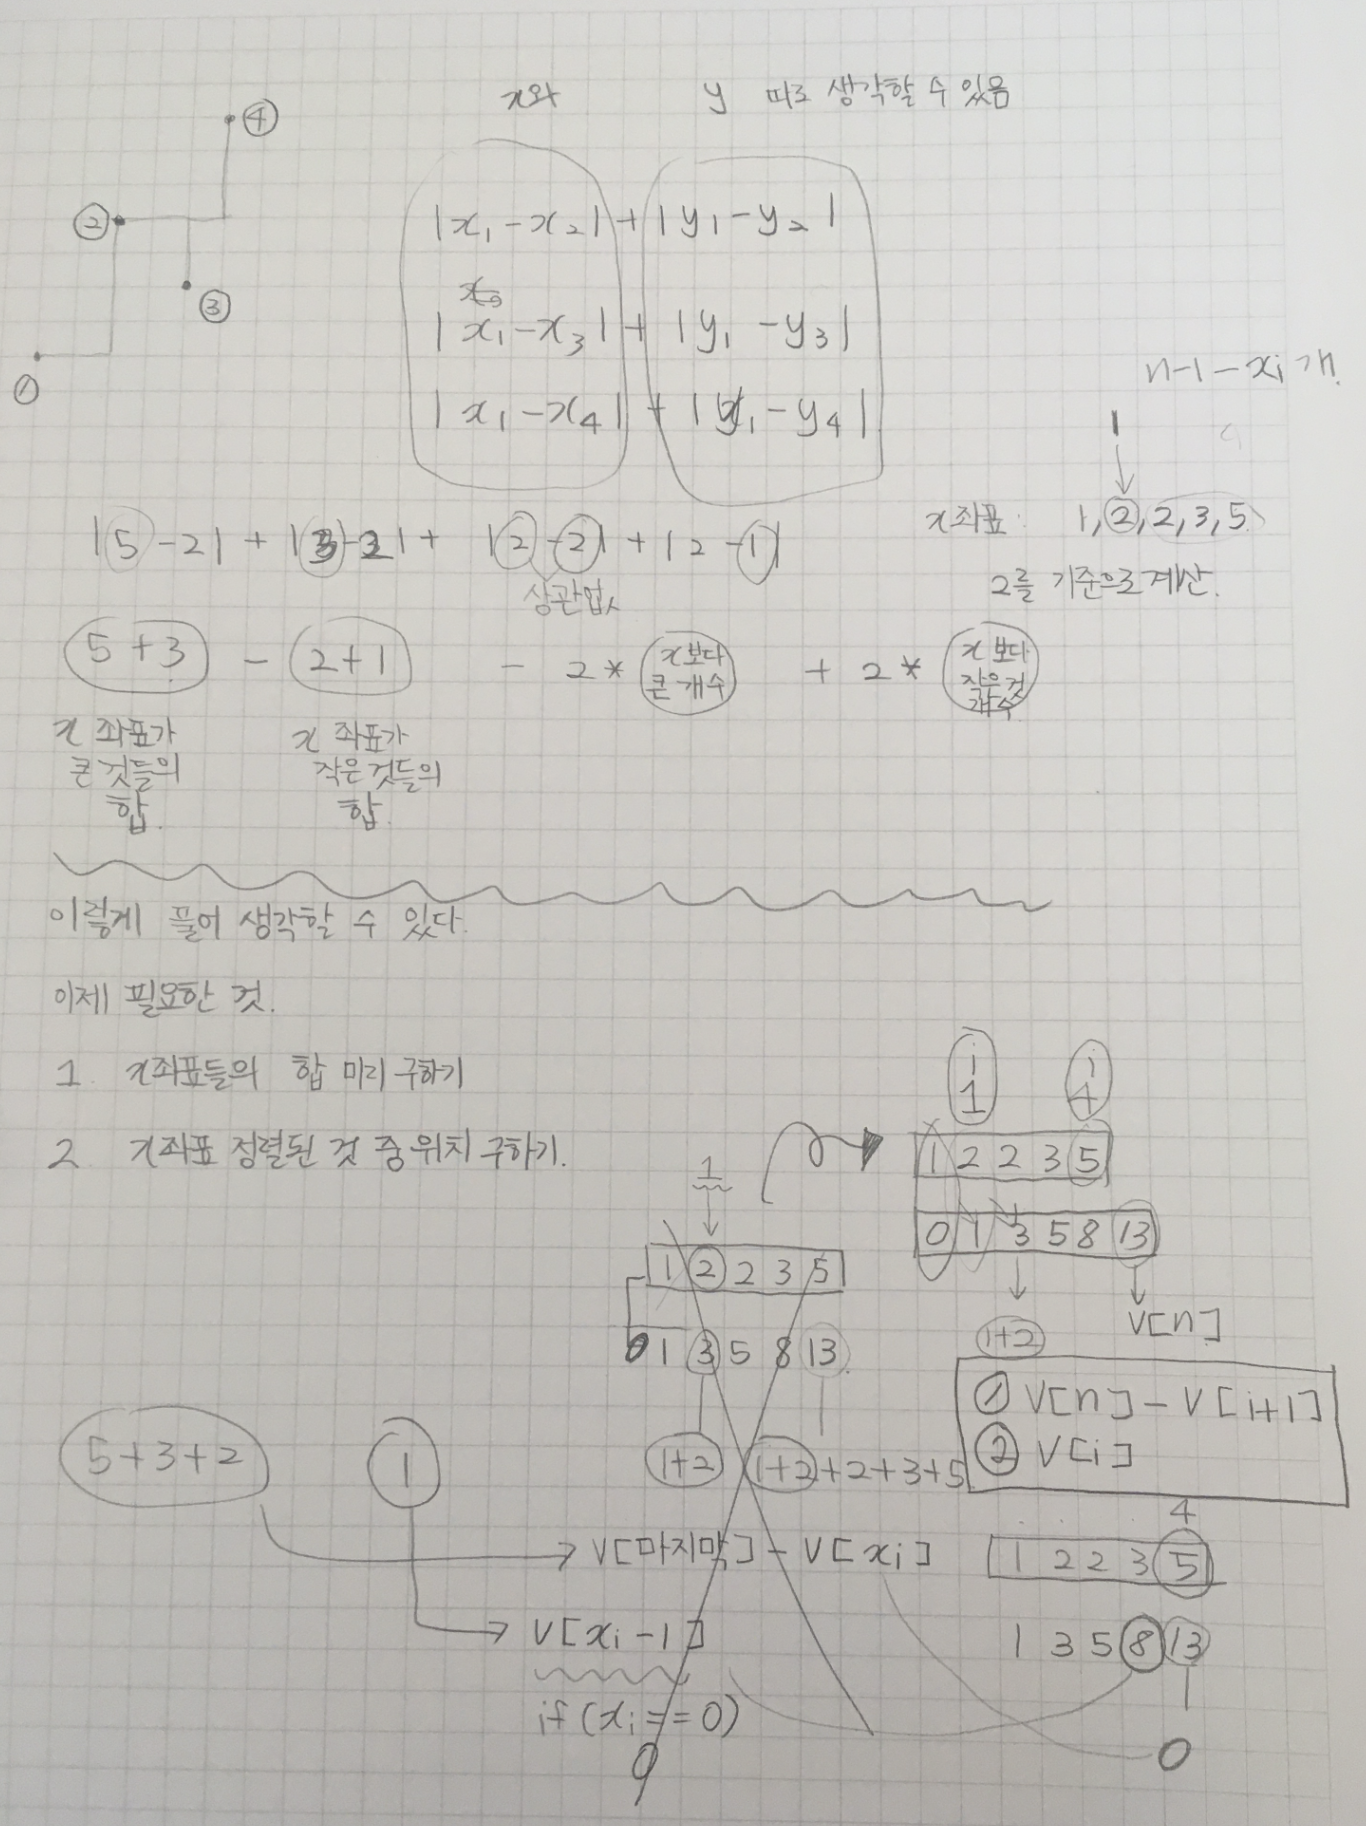 x와 y 따로 생각할 수 있음
④
②
③
①
|x₁-x₂| + |y₁-y₂|
|x₁-x₃| + |y₁-y₃|
|x₁-x₄| + |y₁-y₄|
n-1-xᵢ 개.
1
x좌표: 1, 2, 2, 3, 5
2를 기준으로 계산.
|5-2| + |3-2| + |2-2| + |2-1|
상관없
5+3 - 2+1 - 2* x보다 큰 개수 + 2* x보다 작은 것 개수
x 좌표가 큰 것들의 합.
x 좌표가 작은 것들의 합.
이렇게 풀어 생각할 수 있다.
이제 필요한 것.
1. x좌표들의 합 미리 구하기
2. x좌표 정렬된 것 중 위치 구하기.
i 1
i 4
1 2 2 3 5
0 1 3 5 8 13
1+2
V[n]
① V[n] - V[i+1]
② V[i]
1
1 2 2 3 5
0 1 3 5 8 13
1+2
1+2+2+3+5
5+3+2
1
V[마지막] - V[xᵢ]
V[xᵢ-1]
if(xᵢ==0)
0
4
1 2 2 3 5
1 3 5 8 13
0